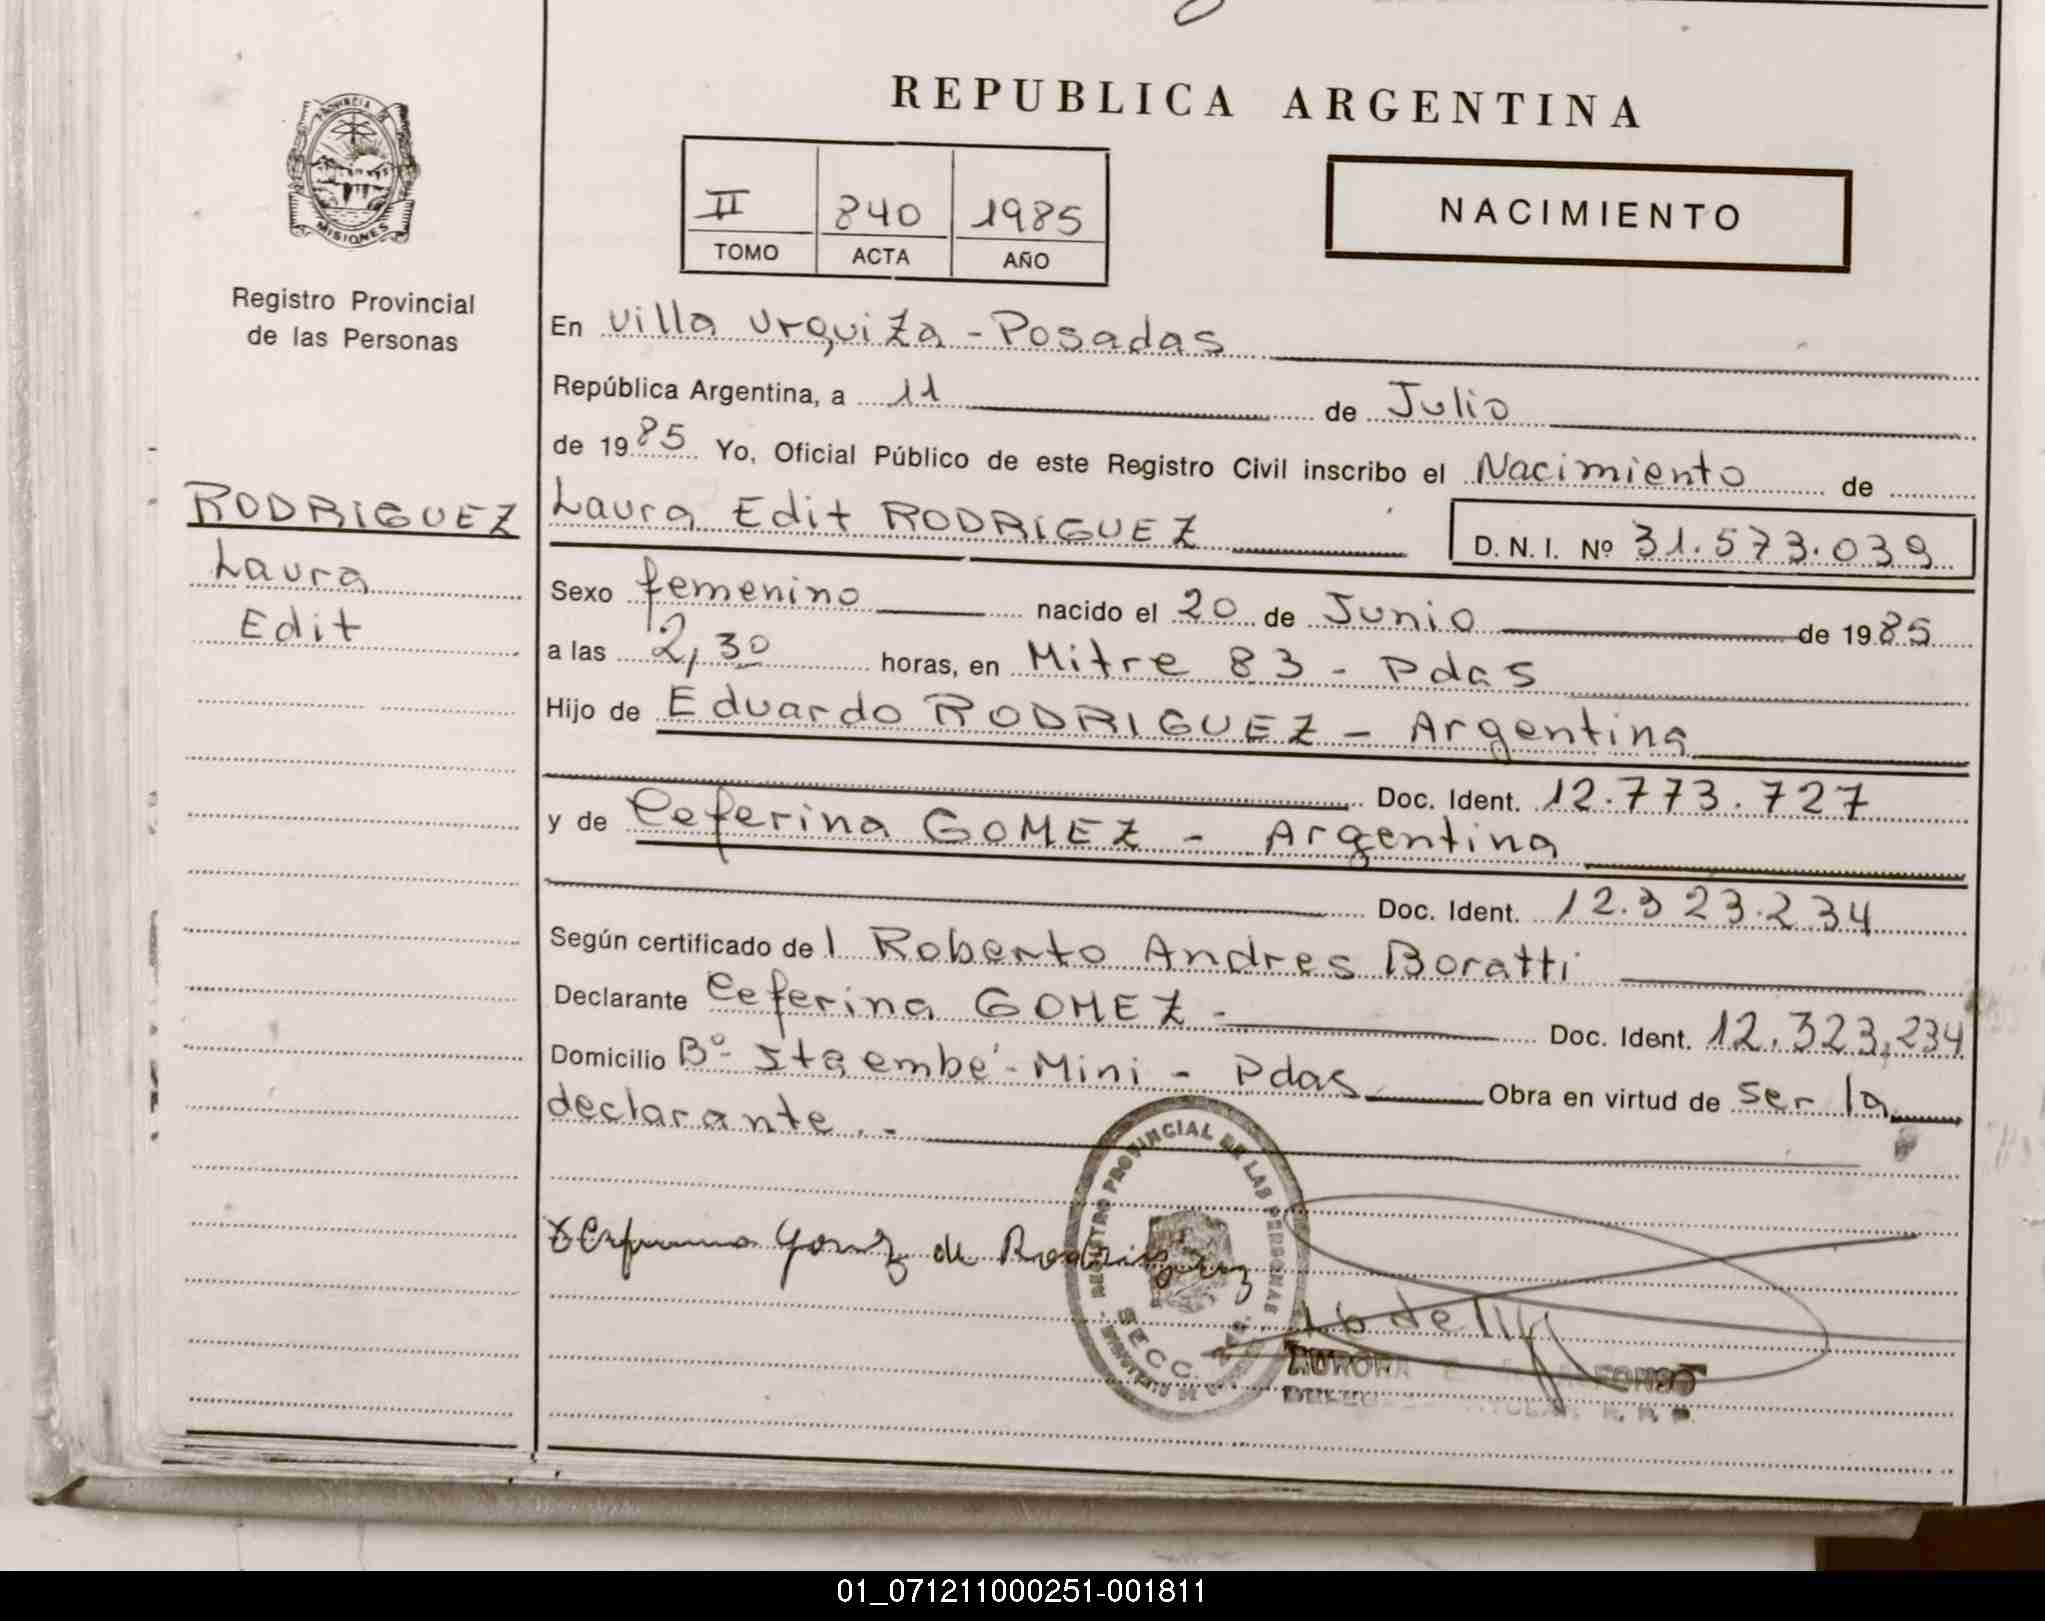 REPUBLICA ARGENTINA
PROVINCIA DE
MISIONES
Registro Provincial
de las Personas
II 840 1985
TOMO ACTA AÑO
NACIMIENTO
En Villa Urquiza - Posadas
República Argentina, a 11 de Julio
de 1985 Yo, Oficial Público de este Registro Civil inscribo el Nacimiento de
RODRIGUEZ
Laura
Edit
Laura Edit RODRIGUEZ D. N. I. Nº 31.573.039
Sexo femenino nacido el 20 de Junio de 1985
a las 2,30 horas, en Mitre 83 - Pdas
Hijo de Eduardo RODRIGUEZ - Argentina
Doc. Ident. 12.773.727
y de Ceferina GOMEZ - Argentina
Doc. Ident. 12.323.234
Según certificado de l Roberto Andres Boratti
Declarante Ceferina GOMEZ - Doc. Ident. 12.323,234
Domicilio Bº- Itaembé - Mini - Pdas Obra en virtud de ser la
declarante. -
Gomez de Rodriguez
REGISTRO PROVINCIAL DE LAS PERSONAS
SECC.
AURORA
01_071211000251-001811